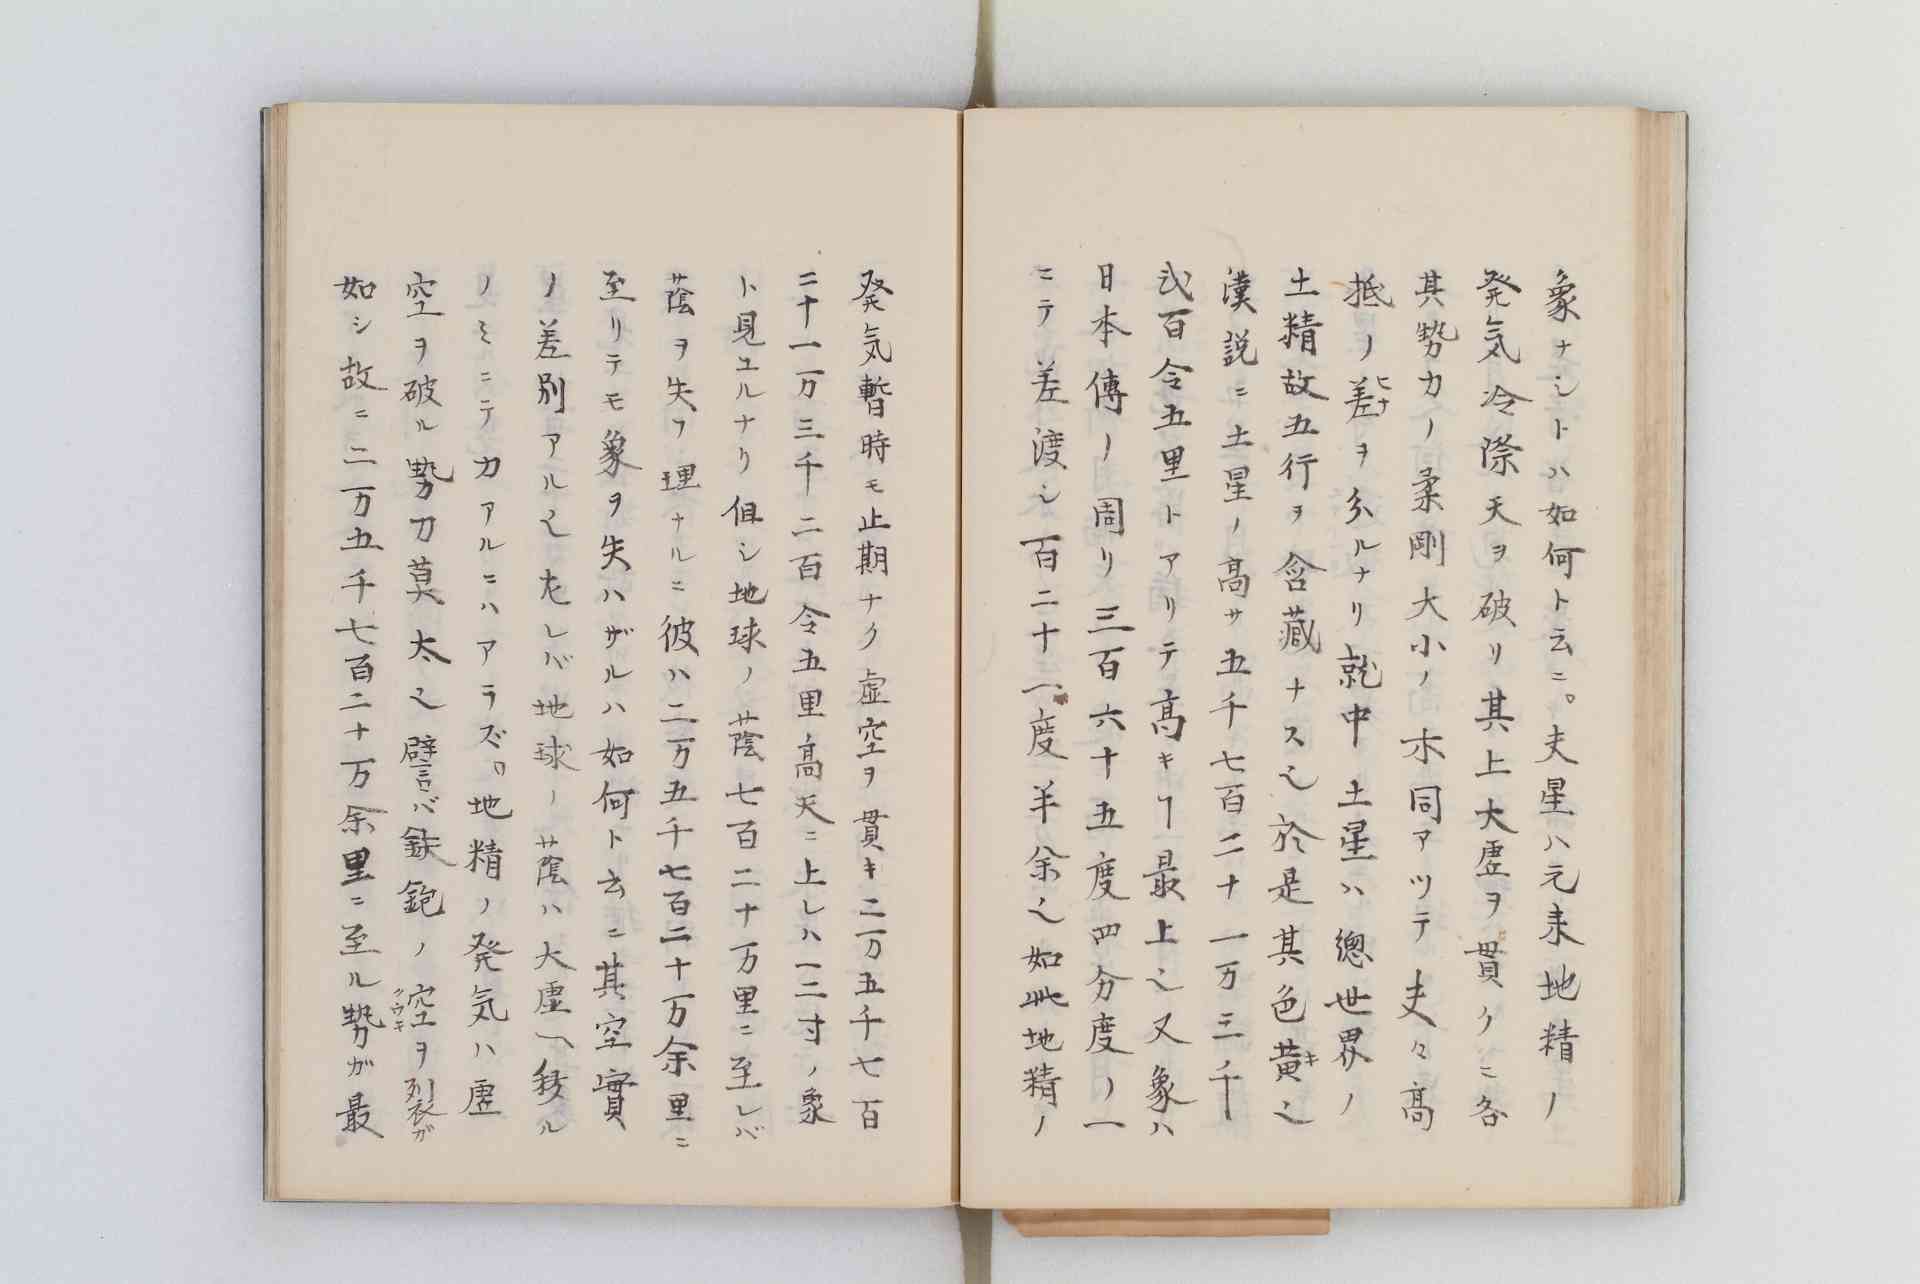 象ナシトハ如何ト云ニ。夫星ハ元来地精ノ
発気冷際天ヲ破リ其上大虚ヲ貫クニ各
其勢力ノ柔剛大小ノ不同アツテ夫々高
抵ノ差ヒナヲ分ルナリ就中土星ハ總世界ノ
土精故五行ヲ含蔵ナスㇸ於是其色黄キㇸ
漢説ニ土星ノ高サ五千七百二十一万三千
弐百令五里トアリテ高キヿ最上ㇸ又象ハ
日本傳ノ周リ三百六十五度四分度ノ一
ニテ差渡シ百二十一度半余ㇸ如此地精ノ
発気暫時モ止期ナク虚空ヲ貫キ二万五千七百
二十一万三千二百令五里高天ニ上レハ一二寸ノ象
ト見ユルナリ但シ地球ノ蔭七百二十万里ニ至レバ
蔭ヲ失フ理ナルニ彼ハ二万五千七百二十万余里ニ
至リテモ象ヲ失ハザルハ如何ト云ニ其空實
ノ差別アルㇸ尤レバ地球ノ蔭ハ大虚ヘ移ル
ノミニテ力アルニハアラズ。地精ノ発気ハ虚
空ヲ破ル勢力莫太ㇸ譬言バ鉄鉋ノ空クウキヲ列衣ガ
如シ故ニ二万五千七百二十万余里ニ至ル勢ガ最